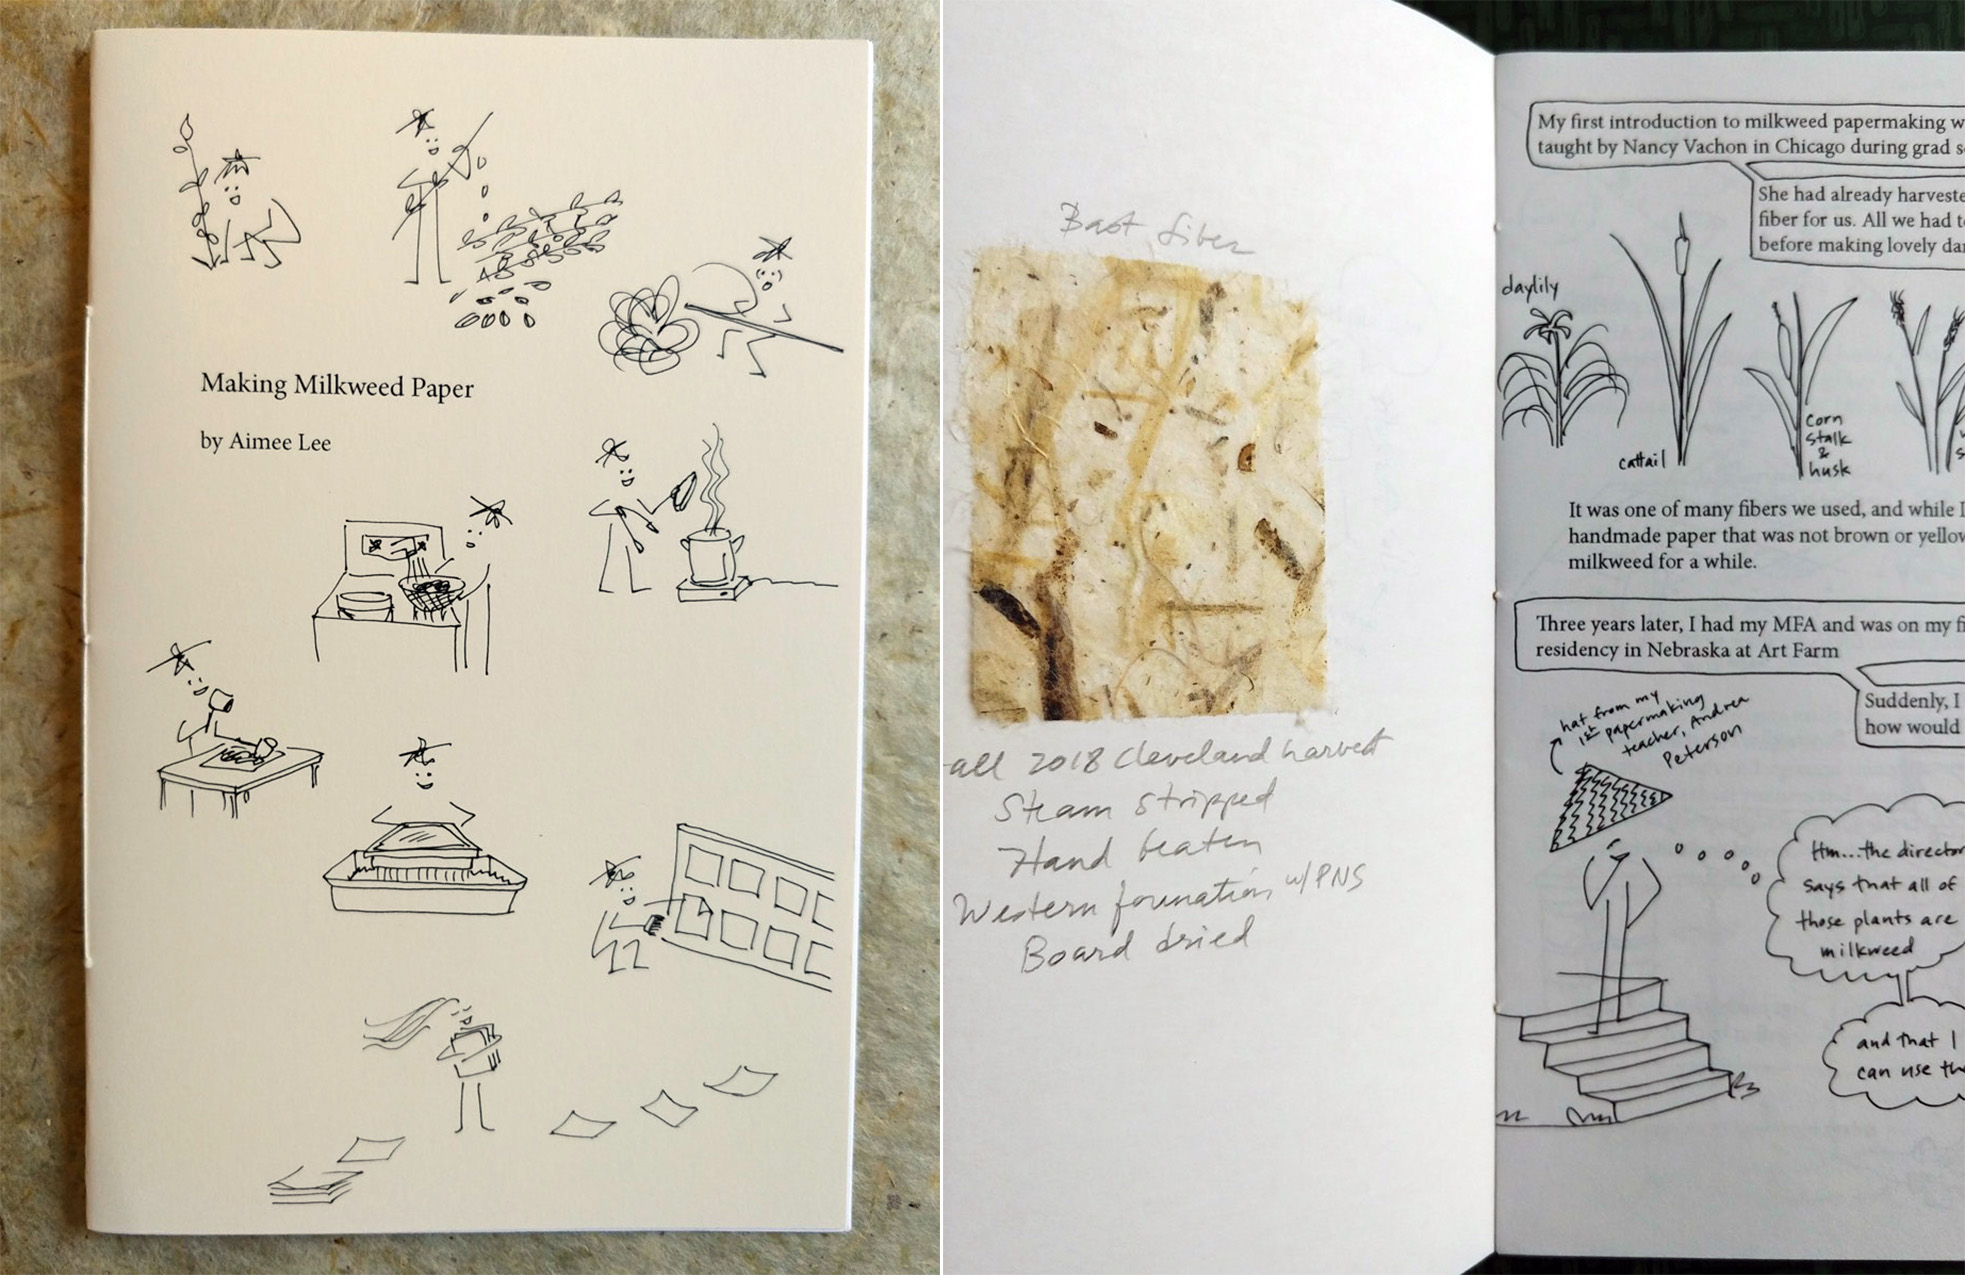 Making Milkweed Paper
by Aimee Lee
Bast fiber
all 2018 Cleveland harvest
Steam stripped
Hand beaten
Western formation w/PNS
Board dried
My first introduction to milkweed papermaking w
taught by Nancy Vachon in Chicago during grad s
She had already harveste
fiber for us. All we had t
before making lovely da
daylily
cattail
Corn
stalk
&
husk
It was one of many fibers we used, and while I
handmade paper that was not brown or yellow
milkweed for a while.
Three years later, I had my MFA and was on my fi
residency in Nebraska at Art Farm
Suddenly, I
how would
hat from my
1st papermaking
teacher, Andrea
Peterson
Hm...the director
says that all of
those plants are
milkweed
and that I
can use th